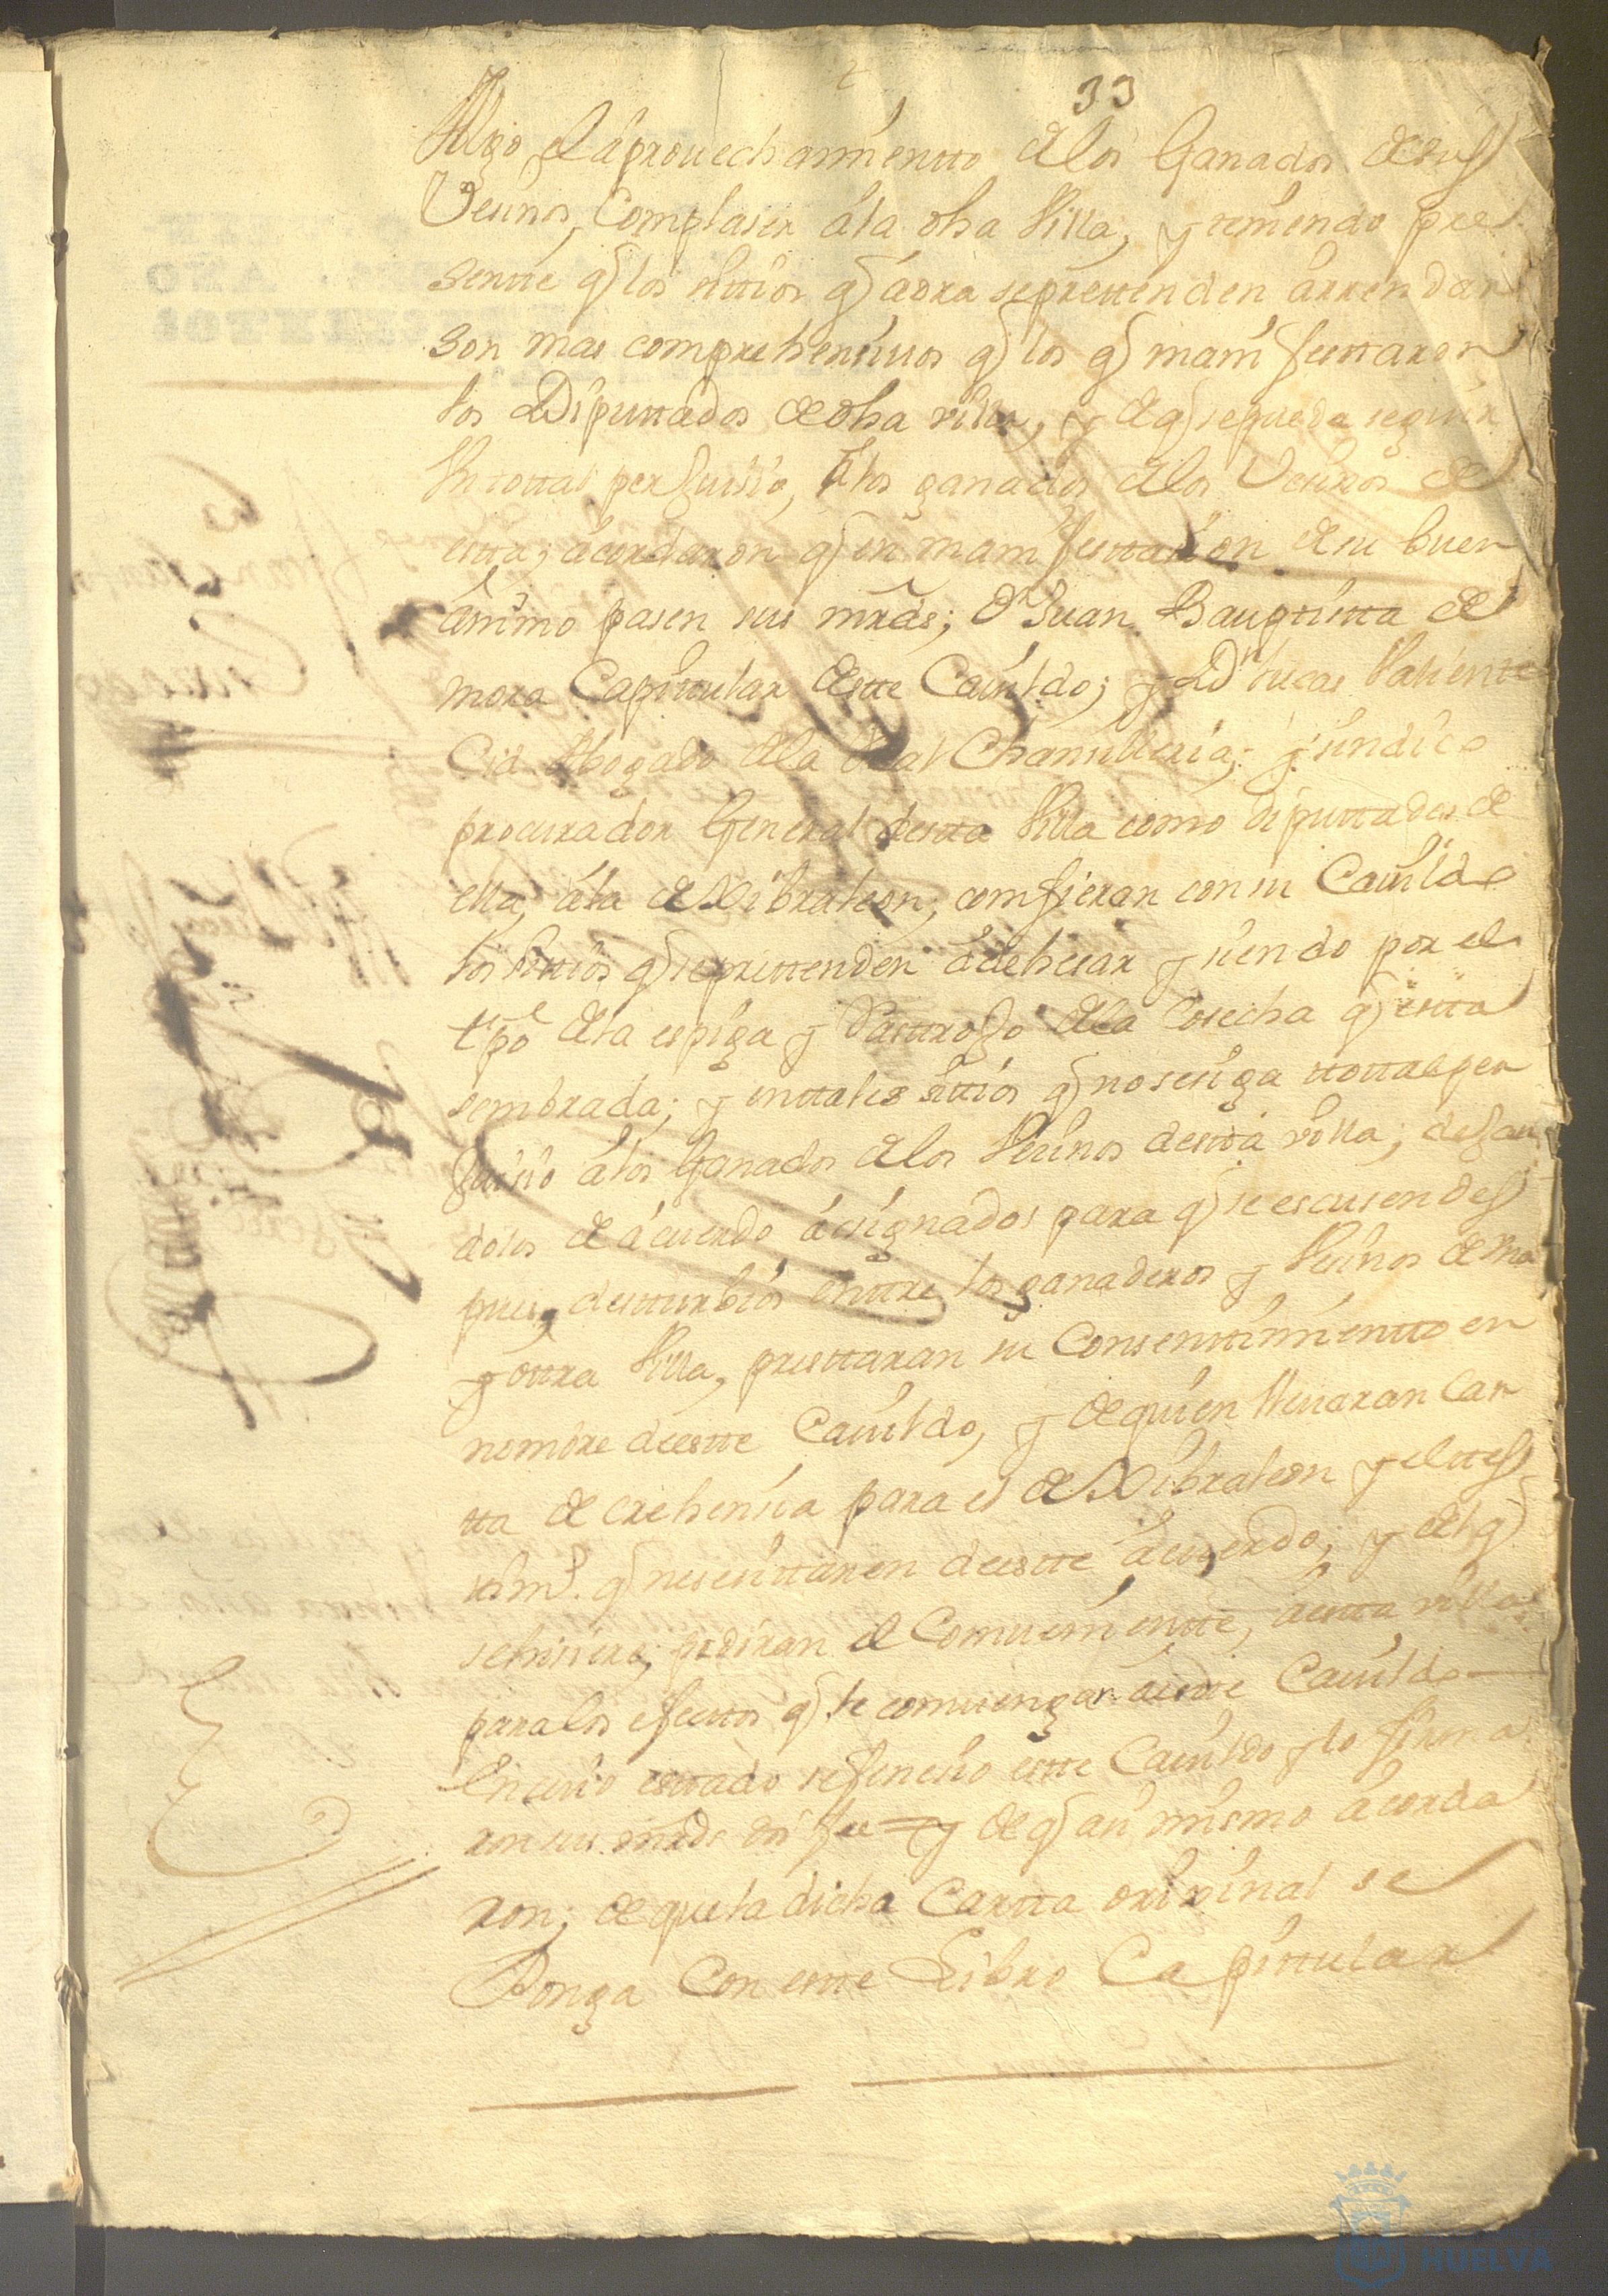 33
Algo el áprouechamientto de los Ganados de sus
Vesinos, Complaser á la dha Villa, y teniendo pre
sentte q los sittios q áora se prettenden árrendar
son mas comprehensiuos q los q manifesttaron
los Diputtados de dha villa, y de q se pueda seguir
Vn tottal perjuisio, á los ganados de los Vesinos de
estta; ácordaron q en manifesttasion de su buen
ánimo pasen sus mrds; Dn Juan Bauptistta de
mora Capittular de estte Cauildo; y Dn lucas Valiente
Cid Abogado de la Real Chansilleria; y sindico
procurador General destta Villa como diputtados de
ella, á la de Xibraleon, comfieran con su Cauildo
los sittios q se prettenden ádehesar y siendo por el
tpo de la espiga y Rasttrojo de la Cosecha q estta
sembrada; y en tales sittios q no se siga ttottal per
juisio á los Ganados de los Vesinos destta villa; dejan
dolos de ácuerdo ásignados para q se escusen des
pues, desturbios enttre los ganaderos y Vesinos de vna
y ottra Villa, presttaran su Consenttimientto en
nombre de estte Cauildo, y de quien lleuaran Car
tta de crehensia para el de Xibraleon y el ttes
tim.o q nesesittaren de estte ácuerdo; y del q
se hisiere, pediran el Comueniente, á estta villa
para los efecttos q le comuengan á estte Cauildo
En cuio esttado se fenesio estte Cauildo y lo firma
ron sus mrds doi fee = y de q asi mismo ácorda
ron; de que la dicha Cartta original se
Ponga Con estte Libro Capittular
HUELVA